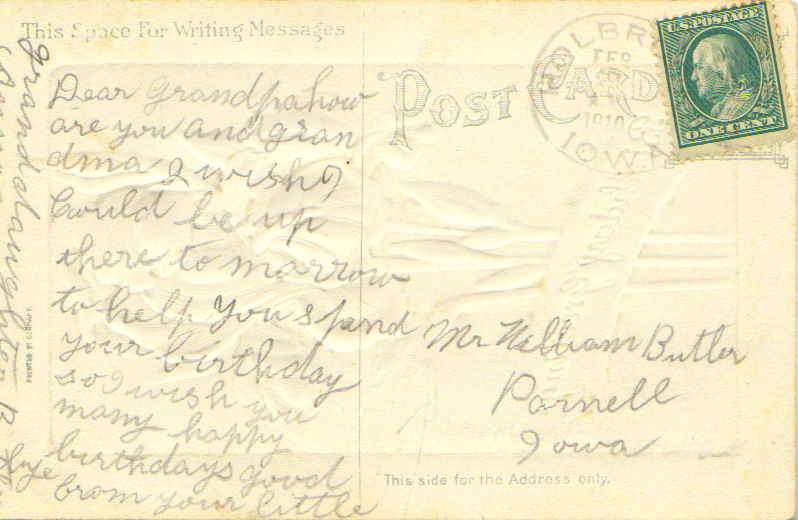 This Space For Writing Messages
Dear Grandpa how
are you and gran
dma I wish I
Could be up
there to marrow
to help you spend
your birthday
so I wish you
many happy
birthdays good
brom your little
granddaughter B
bye
PRINTED IN GERMANY
POST CARD
HOLBR
FEB
1910
IOWA
U.S. POSTAGE
ONE CENT
Mr William Butler
Parnell
Iowa
This side for the Address only.